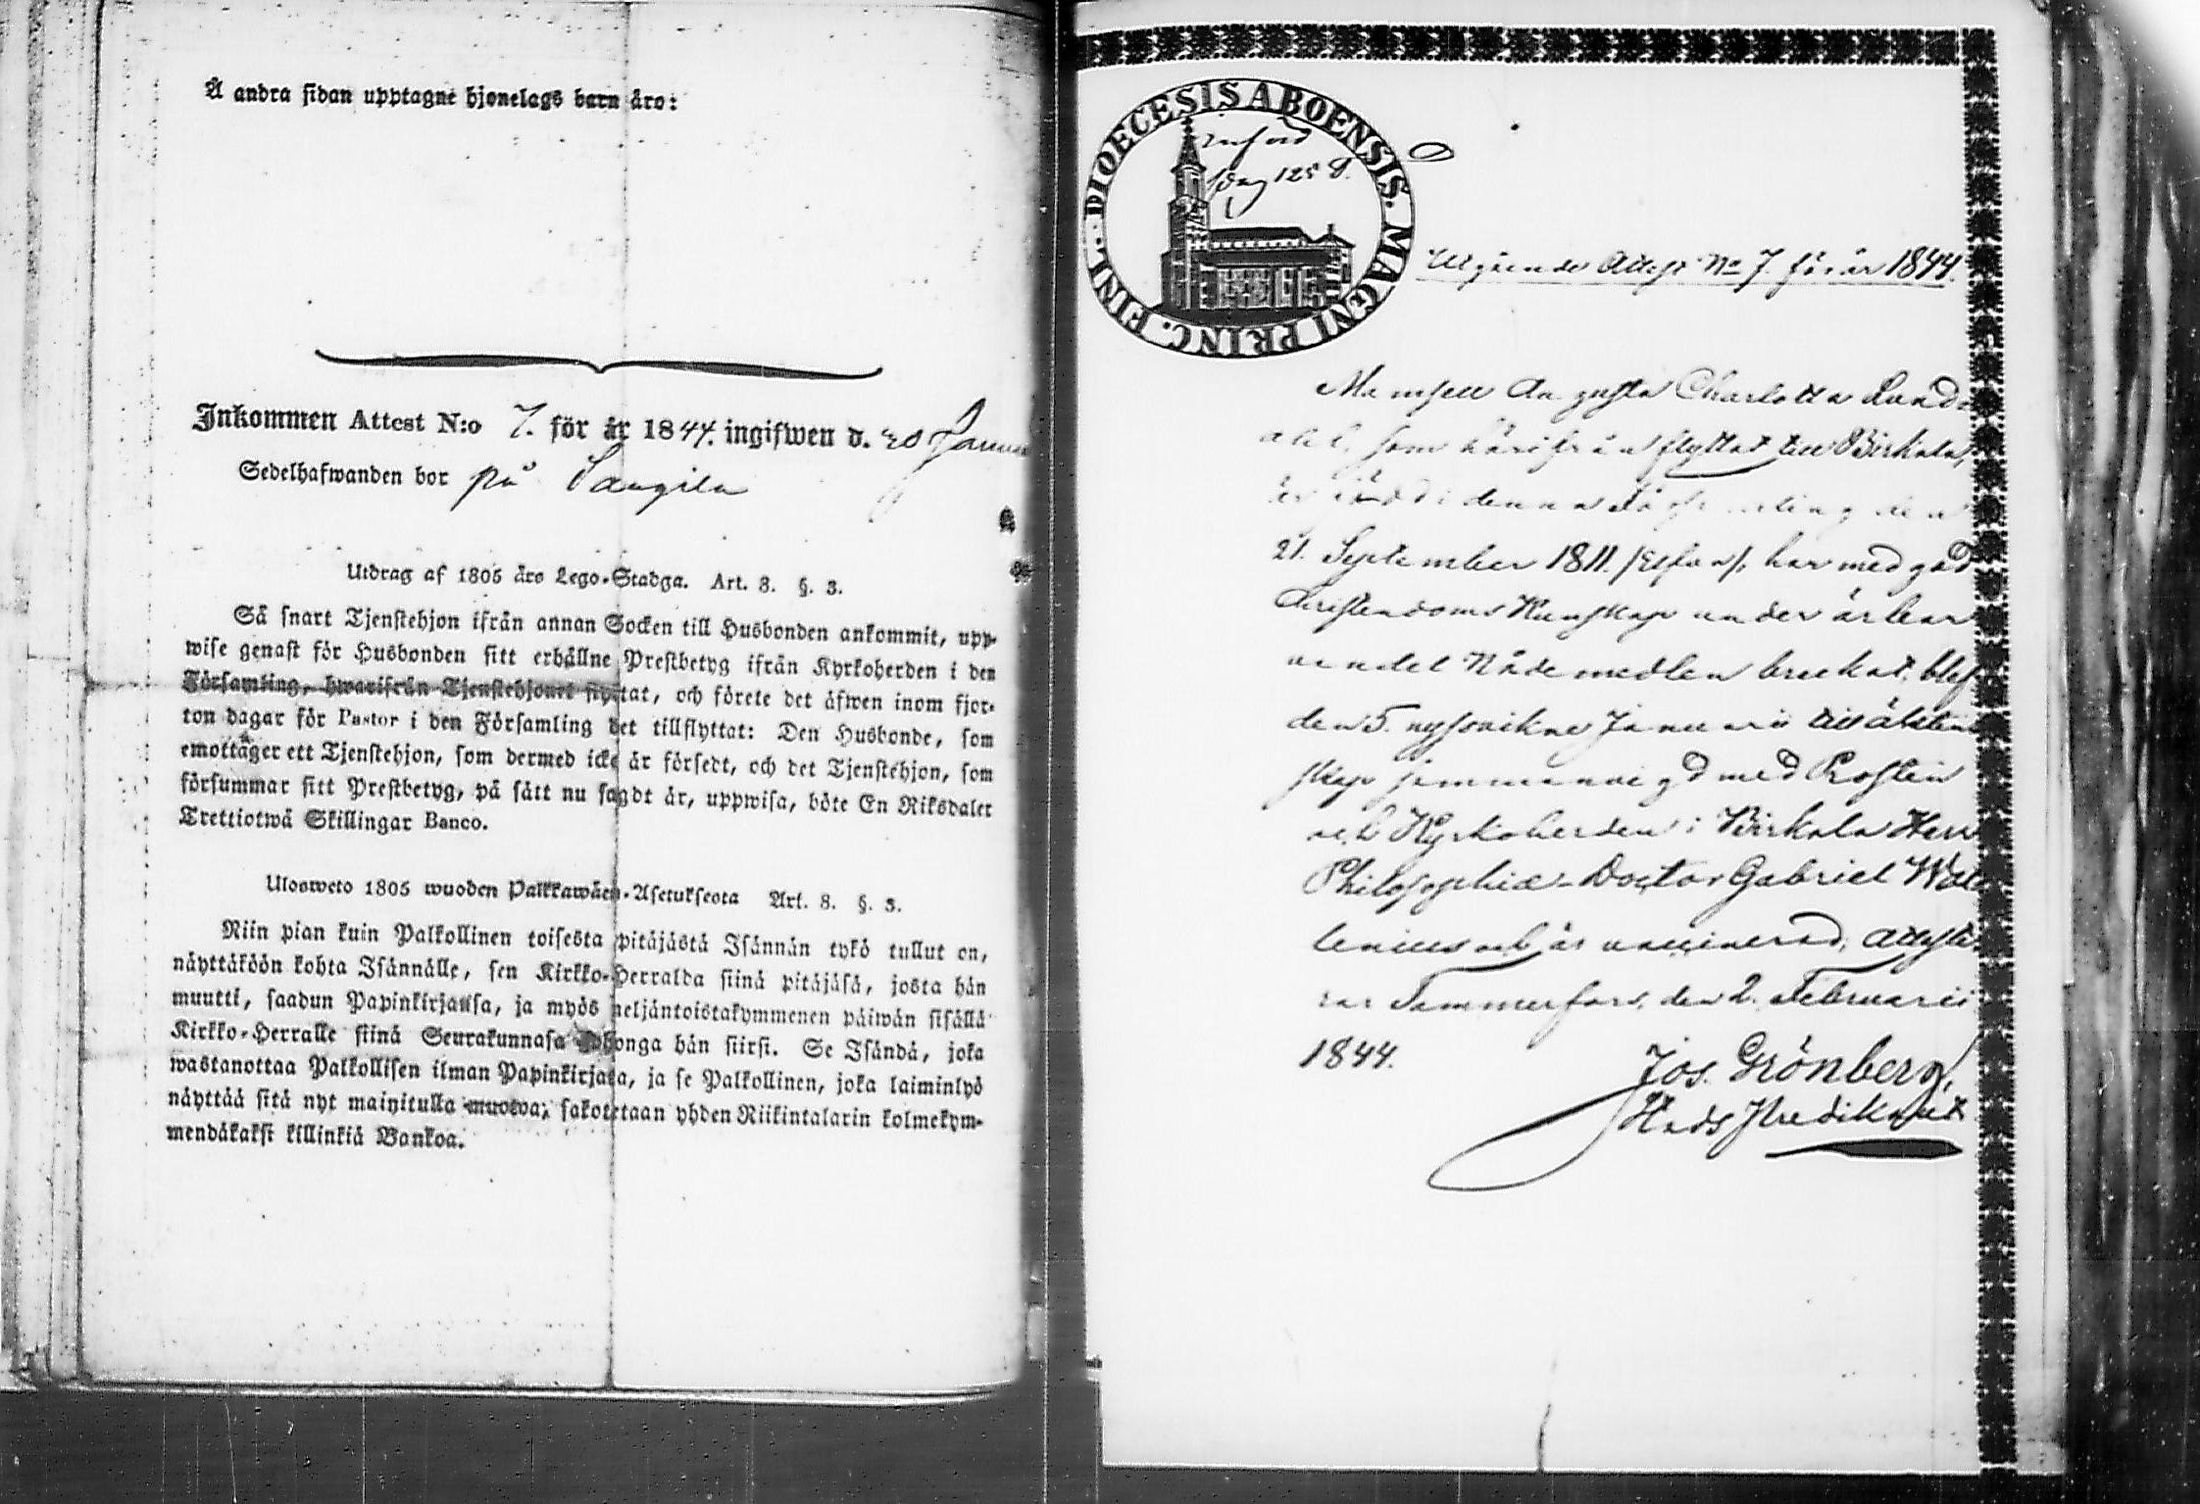 Å andra sidan upptagne hjonelags barn äro:
Inkommen Attest N:o 7. för år 1844. ingifwen d. 20 Janua
Sedelhafwanden bor på
Utdrag af 1805 års Lego-Stadga. Art. 8. §. 3.
Så snart Tjenstehjon ifrån annan Socken till Husbonden ankommit, upp-
wise genast för Husbonden sitt erhållne Prestbetyg ifrån Kyrkoherden i den
Församling, hwarifrån Tjenstehjonet flyttat, och förete det äfwen inom fjor-
ton dagar för Pastor i den Församling det tillflyttat: Den Husbonde, som
emottager ett Tjenstehjon, som dermed icke är försedt, och det Tjenstehjon, som
försummar sitt Prestbetyg, på sätt nu sagdt är, uppwisa, böte En Riksdaler
Trettiotwå Skillingar Banco.
Ulosweto 1805 wuoden Palkkawäen-Asetuksesta Art. 8. §. 3.
Niin pian kuin Palkollinen toisesta pitäjästä Isännän tykö tullut on,
näyttäköön kohta Isännälle, sen Kirkko-Herralda siinä pitäjäsä, josta hän
muutti, saadun Papinkirjansa, ja myös neljäntoistakymmenen päiwän sisällä
Kirkko-Herralle siinä Seurakunnasa johonga hän siirsi. Se Isändä, joka
wastanottaa Palkollisen ilman Papinkirjata, ja se Palkollinen, joka laiminlyö
näyttää sitä nyt mainitulla muotoa, sakotetaan yhden Riikintalarin kolmekym-
mendäkaksi killinkiä Bankoa.
DIOECESIS ABOENSIS. MAGNI PRINC. FINL.
införd
pag 125
Utgående Attest No 7. för år 1844.
Mamsell Augusta Charlotta Lund-
ahl, som härifrån flyttat till Birkala,
är född i denna Församling den
21. September 1811. /Elfva/, har med god
Christendoms Kunskap under ärbar
vandel Nådemedlen brukat, blef
den 5. nyssvikne Januarii till äkten
skap sammanvigd med Prosten
och Kyrkoherden i Birkala Herr
Philosophiæ-Doctor Gabriel Wal
lenius och är vaccinerad, atteste
rar Tammerfors, den 2. Februarii
1844. Jos. Grönberg,
Stads Predikant